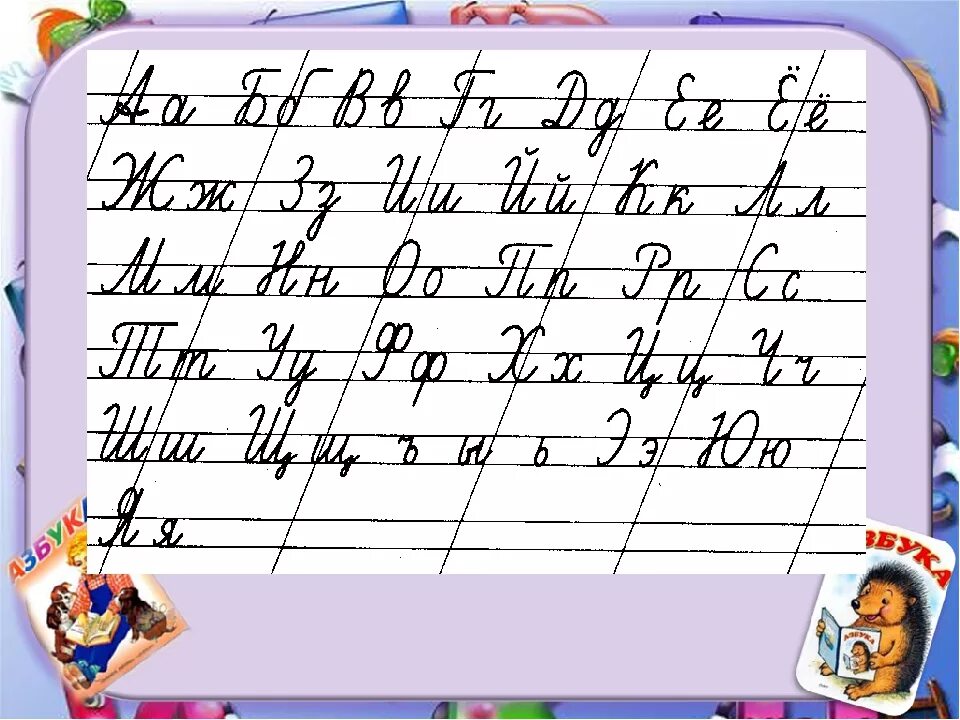 Аа Бб Вв Гг Дд Ее Ёё
Жж Зз Ии Йй Кк Лл
Мм Нн Оо Пп Рр Сс
Тт Уу Фф Хх Цц Чч
Шш Щщ ъ ы ь Ээ Юю
Яя
АЗБУКА
АЗБУКА
АЗБУКА